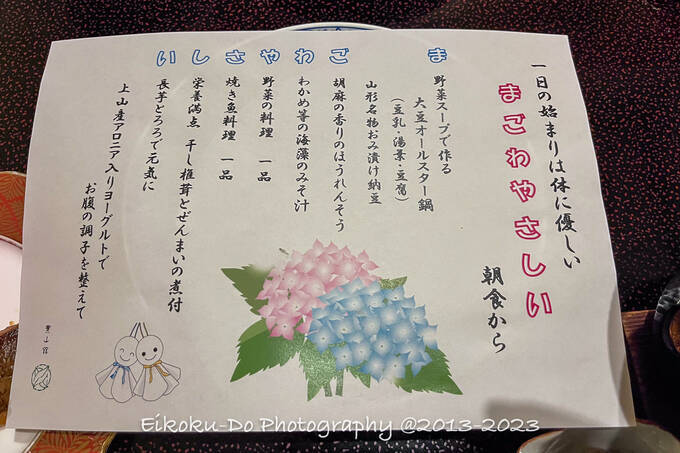 一日の始まりは体に優しい
まごわやさしい
朝食から
ま
野菜スープで作る
大豆オールスター鍋
(豆乳・湯葉・豆腐)
山形名物おみ漬け納豆
ご
胡麻の香りのほうれんそう
わ
わかめ等の海藻のみそ汁
や
野菜の料理 一品
さ
焼き魚料理 一品
し
栄養満点 干し椎茸とぜんまいの煮付
い
長芋とろろで元気に
上山産アロニア入りヨーグルトで
お腹の調子を整えて
Eikoku-Do Photography @2013-2023